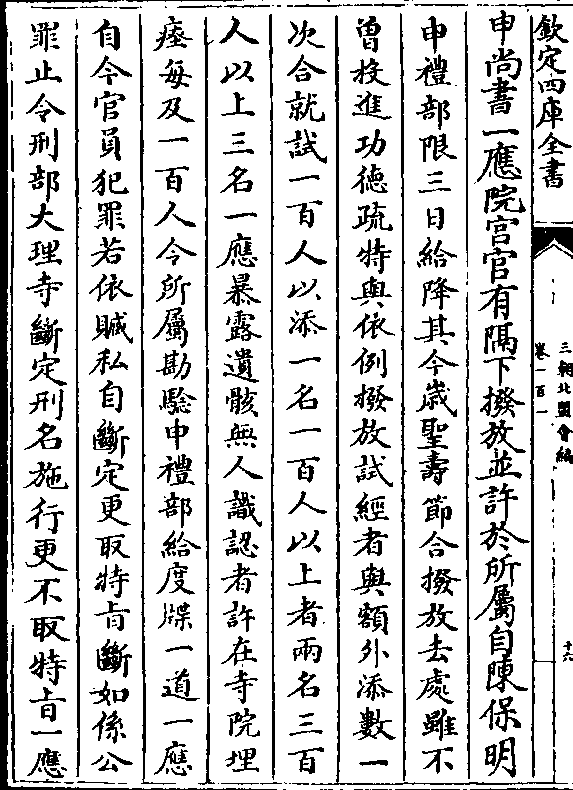 欽定四庫全書
三朝北盟會編
卷一百一
十六
申尚書一應院宮官有隔下撥放並許於所屬自陳保明
申禮部限三日給降其今歲聖壽節合撥放去處雖不
曾投進功德疏特與依例撥放試經者與額外添數一
次合就試一百人以添一名一百人以上者兩名三百
人以上三名一應暴露遺骸無人識認者許在寺院埋
瘞每及一百人令所屬勘驗申禮部給度牒一道一應
自今官員犯罪若依贓私自斷定更取特旨斷如係公
罪止令刑部大理寺斷定刑名施行更不取特旨一應